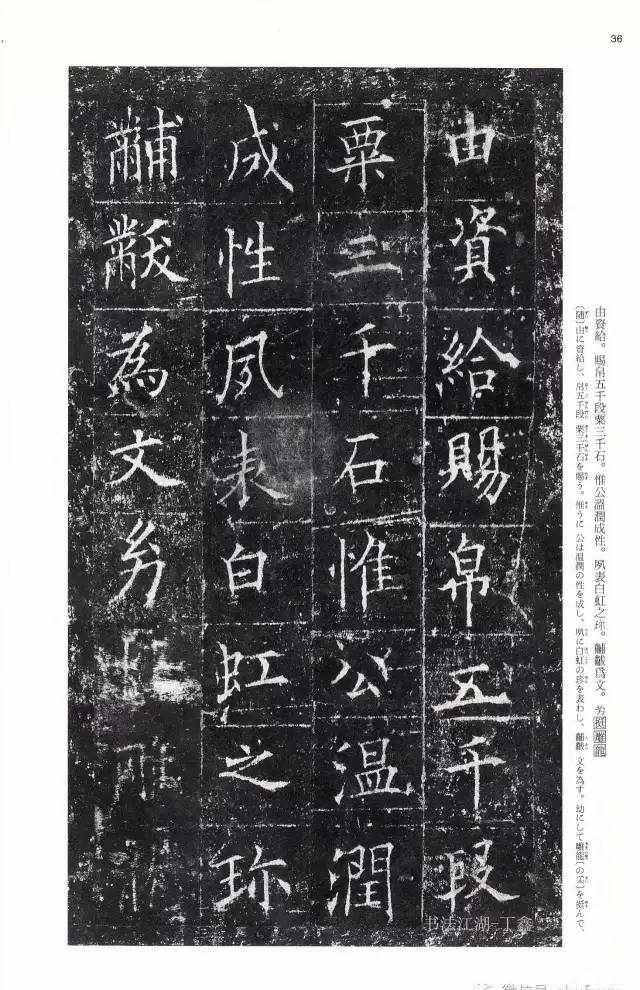 36
由資給賜帛五千段
粟三千石惟公温潤
成性夙表白虹之珎
黼黻為文㓜
由資給。賜帛五千段粟三千石。惟公溫潤成性。夙表白虹之珎。黼黻爲文。㓜挺雕龍
〔随〕由に資給し、帛五千段 粟三千石を賜う。惟うに 公は温潤の性を成し、夙に白虹の珍を表わし、黼黻 文を為す。幼にして雕龍〔の采〕を挺んで、
书法江湖-丁鑫